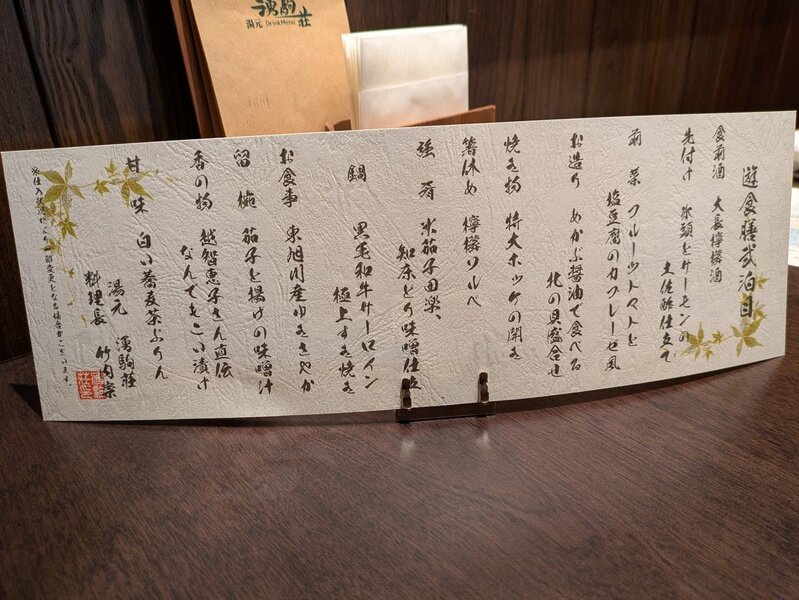 湧駒荘
湯元 Drink Menu
遊食膳弐泊目
食前酒 大長檸檬酒
先付け 氷頭とサーモンの
土佐酢仕立て
前菜 フルーツトマトと
塩豆腐のカプレーゼ風
お造り めかぶ醤油で食べる
北の貝盛合せ
焼き物 特大ホッケの開き
箸休め 檸檬ソルベ
強肴 米茄子田楽、
知床どり味噌仕立
鍋 黒毛和牛サーロイン
極上すき焼き
お食事 東旭川産ゆきさやか
留椀 茄子と揚げの味噌汁
香の物 越智恵子さん直伝
なんでもこい漬け
甘味 白い蕎麦茶ぷりん
湯元 湧駒荘
料理長 竹内
※仕入れ状況により一部変更となる場合がございます